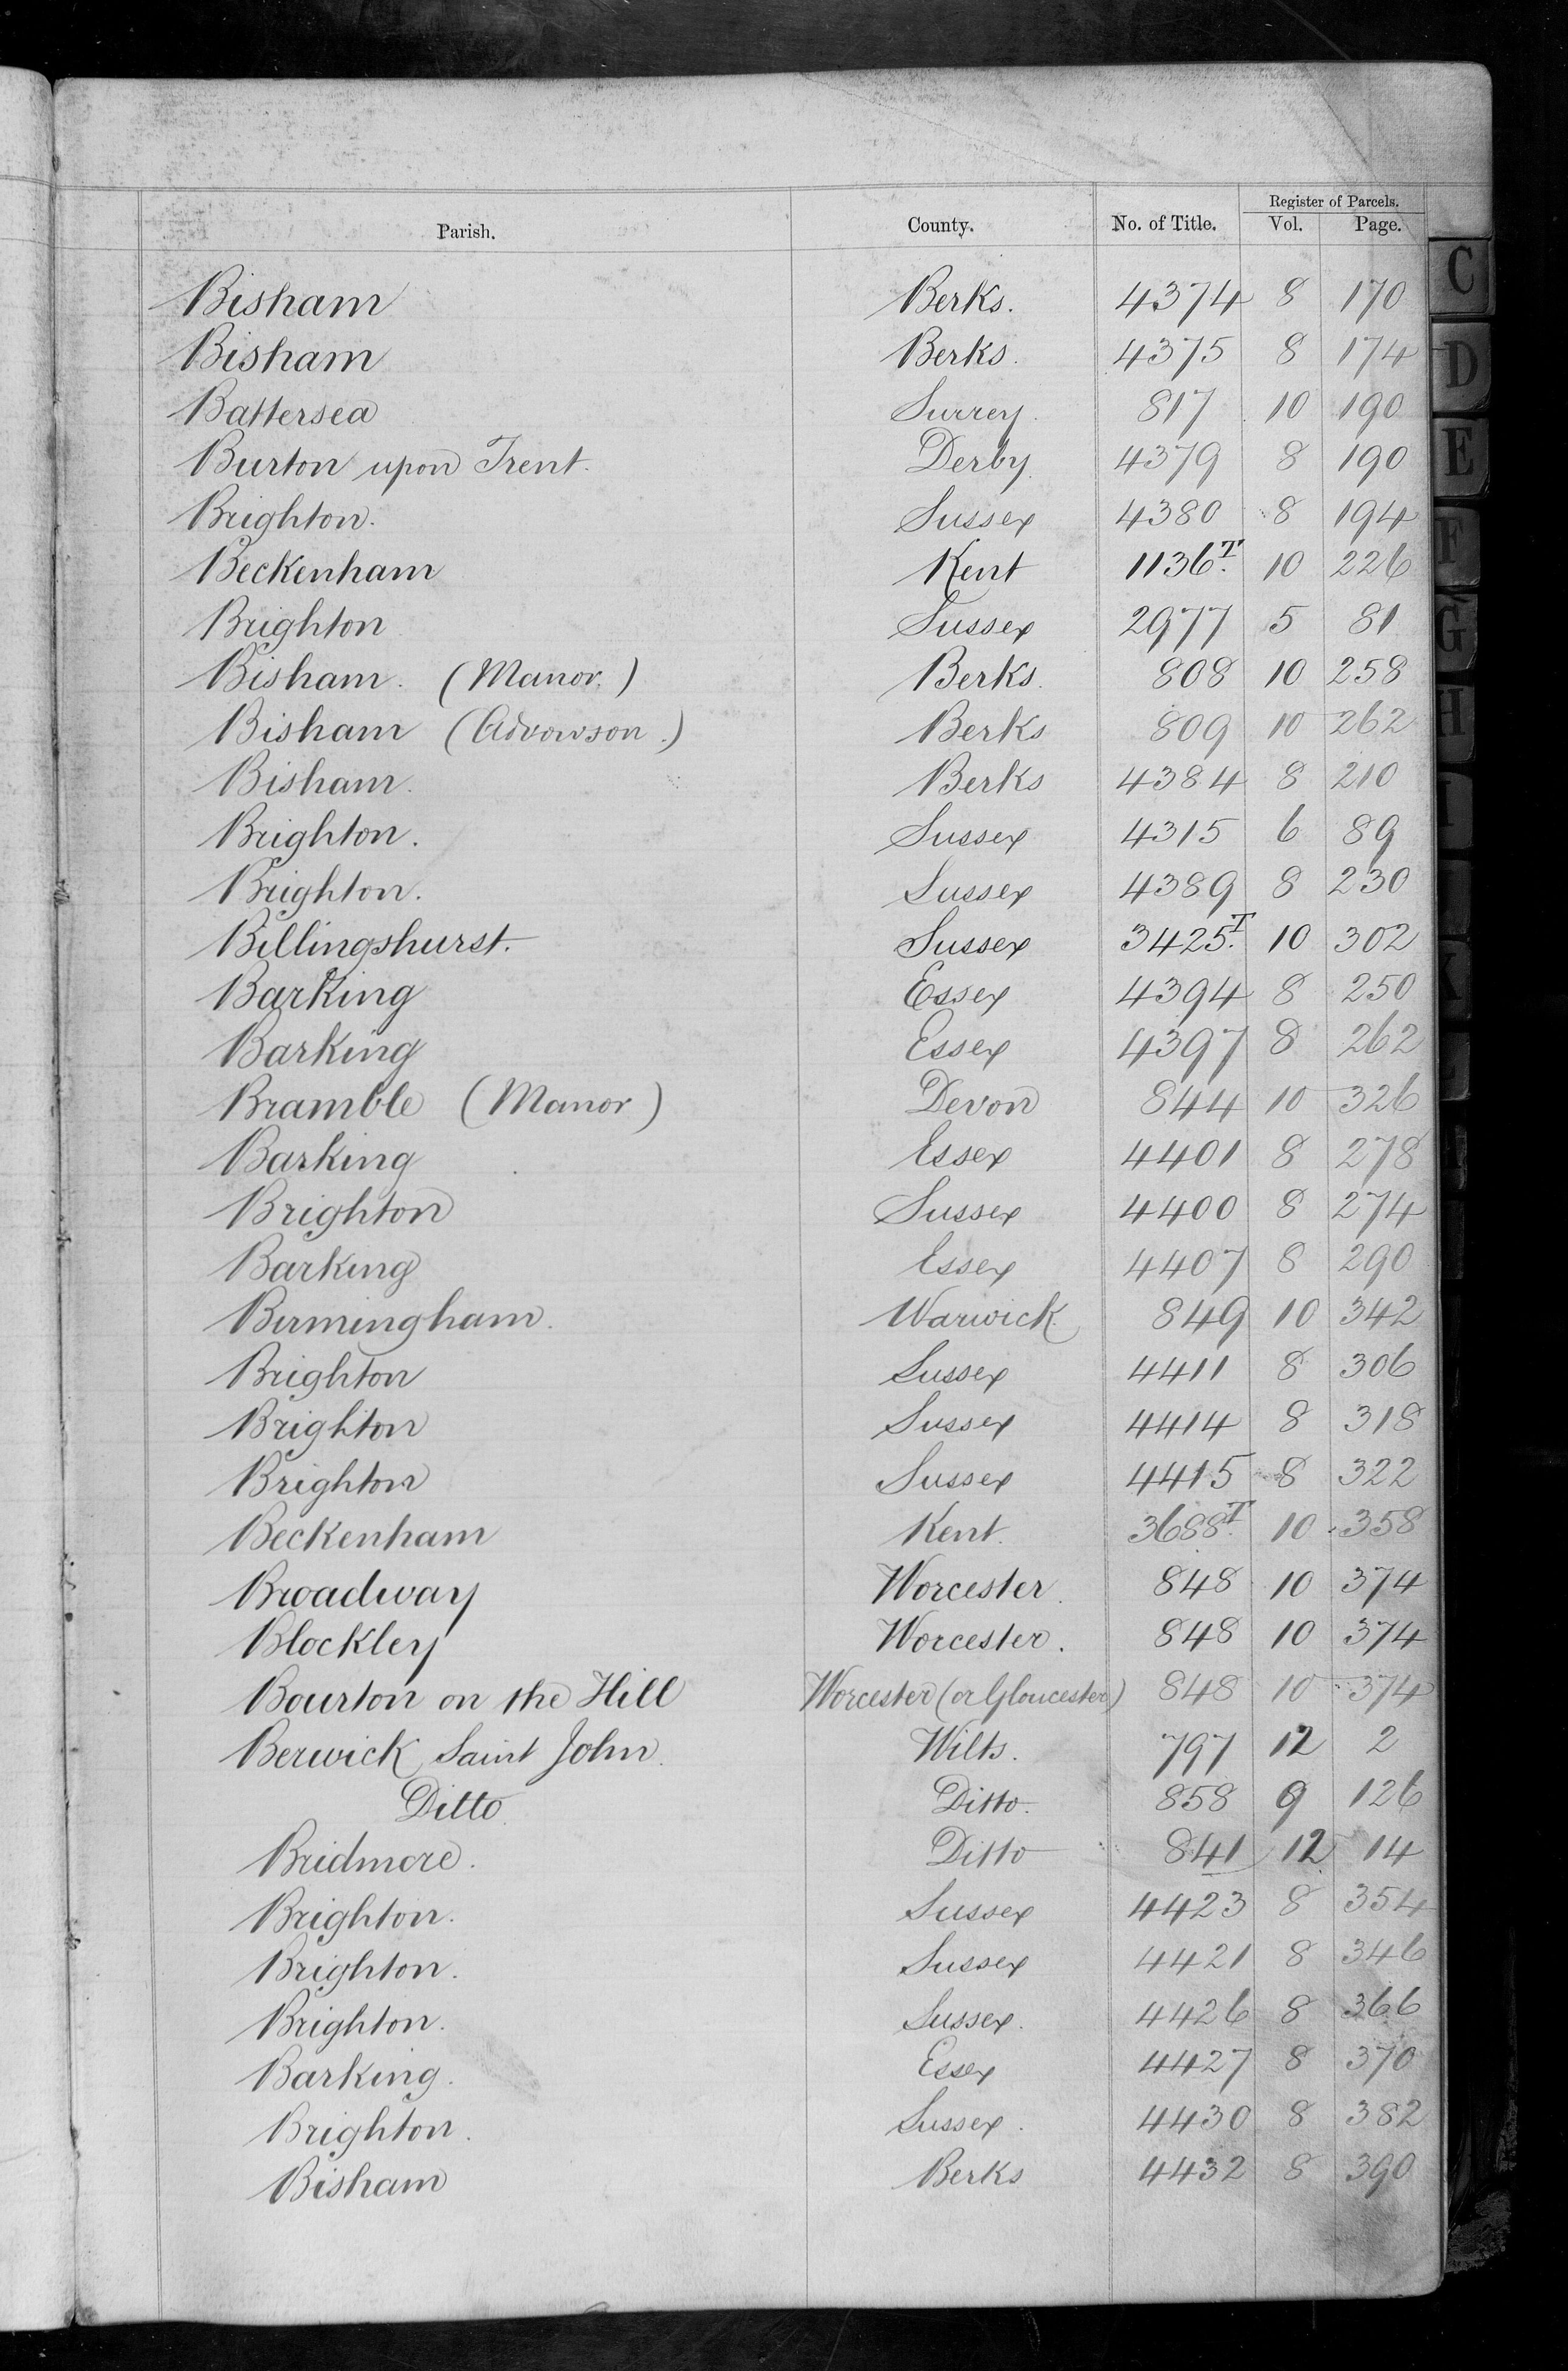 Parish. County. No. of Title. Register of Parcels. Vol. Page.
Bisham Berks. 4374 8 170
Bisham Berks. 4375 8 174
Battersea Surrey. 817 10 190
Burton upon Trent. Derby. 4379 8 190
Brighton. Sussex 4380 8 194
Beckenham Kent 1136T. 10 226
Brighton Sussex 2977 5 81
Bisham. (Manor.) Berks. 808 10 258
Bisham (Advowson.) Berks 809 10 262
Bisham. Berks 4384 8 210
Brighton. Sussex 4315 6 89
Brighton. Sussex 4389 8 230
Billingshurst. Sussex 3425T. 10 302
Barking Essex 4394 8 250
Barking Essex 4397 8 262
Bramble (Manor) Devon 844 10 326
Barking Essex 4401 8 278
Brighton Sussex 4400 8 274
Barking Essex 4407 8 290
Birmingham. Warwick. 849 10 342
Brighton Sussex 4411 8 306
Brighton Sussex 4414 8 318
Brighton Sussex 4415 8 322
Beckenham Kent. 3688T. 10 358
Broadway Worcester. 848 10 374
Blockley Worcester. 848 10 374
Bourton on the Hill Worcester (or Gloucester) 848 10 374
Berwick Saint John. Wilts. 797 12 2
Ditto. Ditto. 858 9 126
Bridmore. Ditto 841 12 14
Brighton. Sussex 4423 8 354
Brighton. Sussex 4421 8 346
Brighton. Sussex. 4426 8 366
Barking. Essex 4427 8 370
Brighton. Sussex. 4430 8 382
Bisham Berks 4432 8 390
C
D
E
F
G
H
I
K